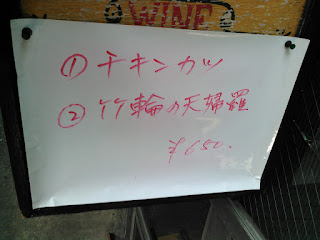 WINE
① チキンカツ
② 竹輪の天婦羅
¥650.